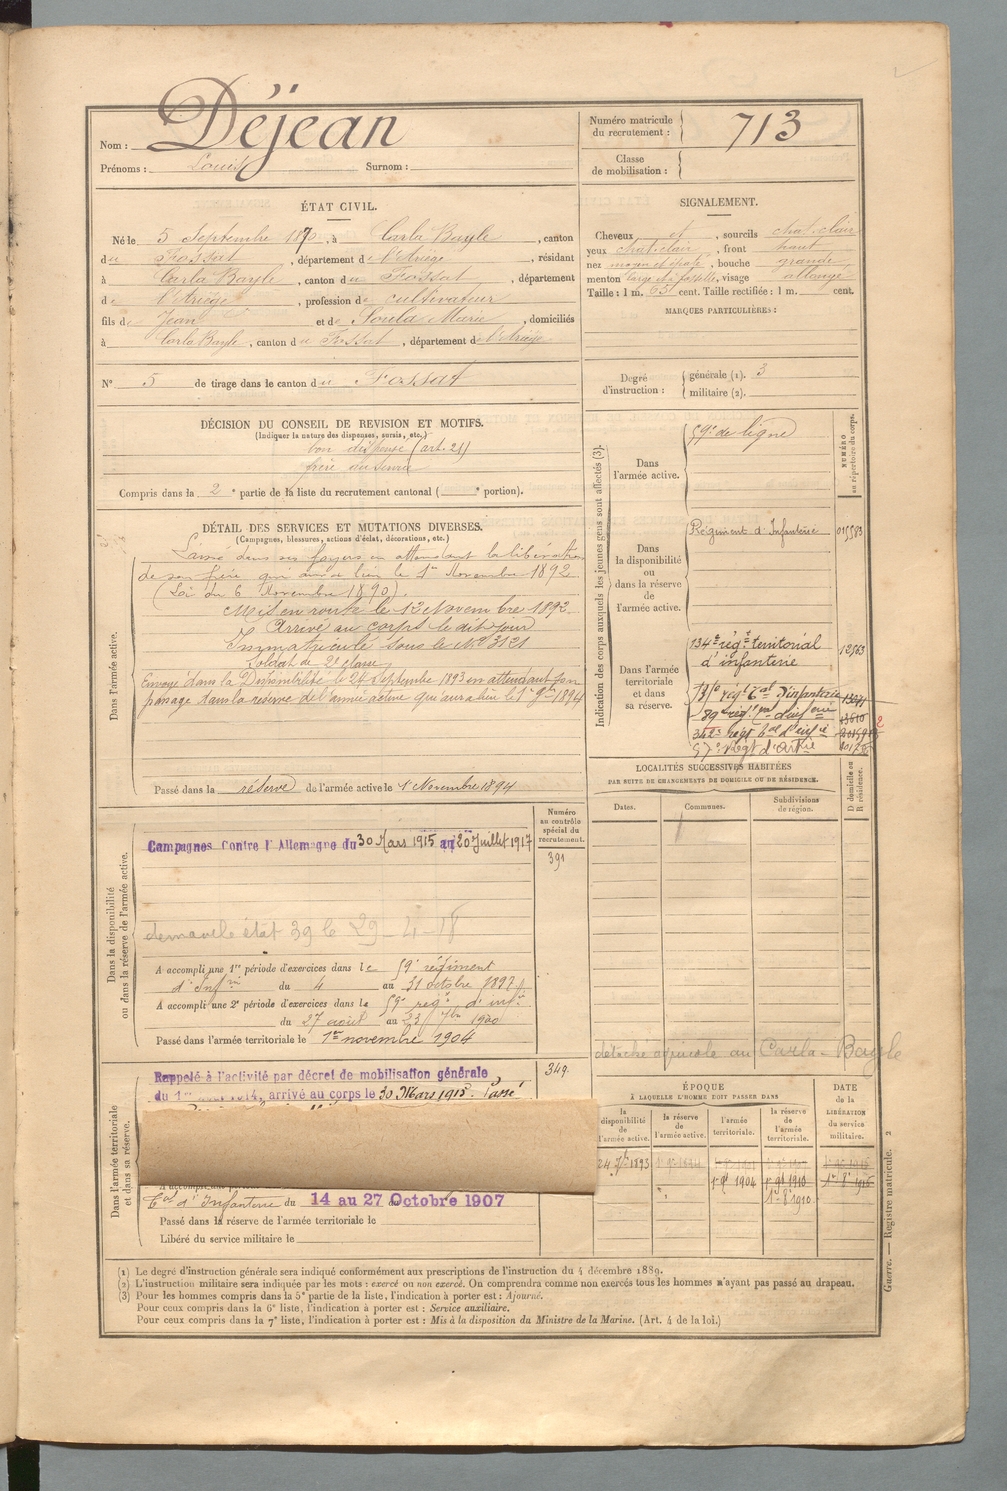 Nom : Déjean
Prénoms : Louis Surnom :
Numéro matricule du recrutement : 713
Classe de mobilisation :
ÉTAT CIVIL.
Né le 5 Septembre 1870, à Carla Bayle, canton
du Fossat, département de l'Ariège, résidant
à Carla Bayle, canton du Fossat, département
de l'Ariège, profession de cultivateur
fils de Jean et de Soula Marie, domiciliés
à Carla Bayle, canton du Fossat, département de l'Ariège
N° 5 de tirage dans le canton du Fossat
SIGNALEMENT.
Cheveux et, sourcils chat. clair
yeux chat. clair, front haut
nez moyen et épaté, bouche grande
menton large et fossette, visage allongé
Taille : 1 m. 65 cent. Taille rectifiée : 1 m. cent.
MARQUES PARTICULIÈRES :
Degré d'instruction : générale (1). 3
militaire (2).
DÉCISION DU CONSEIL DE REVISION ET MOTIFS.
(Indiquer la nature des dispenses, sursis, etc.)
bon dispensé (art. 21)
frère au service
Compris dans la 2e partie de la liste du recrutement cantonal ( e portion).
DÉTAIL DES SERVICES ET MUTATIONS DIVERSES.
(Campagnes, blessures, actions d'éclat, décorations, etc.)
Dans l'armée active.
Laissé dans ses foyers en attendant la libération
de son frère qui aura lieu le 1er Novembre 1892
(Loi du 6 Novembre 1890).
Mis en route le 12 Novembre 1892
Arrivé au corps le dit jour
Immatriculé sous le No 3121
Soldat de 2e classe
Envoyé dans la Disponibilité le 24 Septembre 1893 en attendant son
passage dans la réserve de l'armée active qui aura lieu le 1er 9bre 1894
Passé dans la réserve de l'armée active le 1er Novembre 1894
Indication des corps auxquels les jeunes gens sont affectés (3).
NUMÉRO au répertoire du corps.
Dans l'armée active.
59e de ligne
Dans la disponibilité ou dans la réserve de l'armée active.
Régiment d'Infanterie 015583
Dans l'armée territoriale et dans sa réserve.
134e régt territorial
d'infanterie 12963
LOCALITÉS SUCCESSIVES HABITÉES
PAR SUITE DE CHANGEMENTS DE DOMICILE OU DE RÉSIDENCE.
Dates. Communes. Subdivisions de région. D domicile ou R résidence.
détaché agricole au Carla-Bayle
Dans la disponibilité ou dans la réserve de l'armée active.
Numéro au contrôle spécial du recrutement.
391
Campagnes Contre l'Allemagne du 30 Mars 1915 au 20 Juillet 1917
état 39 le 29-4-18
A accompli une 1re période d'exercices dans le 59e régiment
d'Infie du 4 au 31 octobre 1897
A accompli une 2e période d'exercices dans le 59e régt d'Inf.
du 27 août au 23 7bre 1900
Passé dans l'armée territoriale le 1er novembre 1904
Dans l'armée territoriale et dans sa réserve.
349
Rappelé à l'activité par décret de mobilisation générale
du 1er août 1914, arrivé au corps le 30 Mars 1915. Passé
tal d'Infanterie du 14 au 27 Octobre 1907
Passé dans la réserve de l'armée territoriale le
Libéré du service militaire le
ÉPOQUE
À LAQUELLE L'HOMME DOIT PASSER DANS
la disponibilité de l'armée active. la réserve de l'armée active. l'armée territoriale. la réserve de l'armée territoriale.
DATE de la LIBÉRATION du service militaire.
24 7bre 1893 1er 9bre 1894
1er 9bre 1904 1er 9bre 1910
(1) Le degré d'instruction générale sera indiqué conformément aux prescriptions de l'instruction du 4 décembre 1889.
(2) L'instruction militaire sera indiquée par les mots : exercé ou non exercé. On comprendra comme non exercés tous les hommes n'ayant pas passé au drapeau.
(3) Pour les hommes compris dans la 5e partie de la liste, l'indication à porter est : Ajourné.
Pour ceux compris dans la 6e liste, l'indication à porter est : Service auxiliaire.
Pour ceux compris dans la 7e liste, l'indication à porter est : Mis à la disposition du Ministre de la Marine. (Art. 4 de la loi.)
Guerre. — Registre matricule. 2